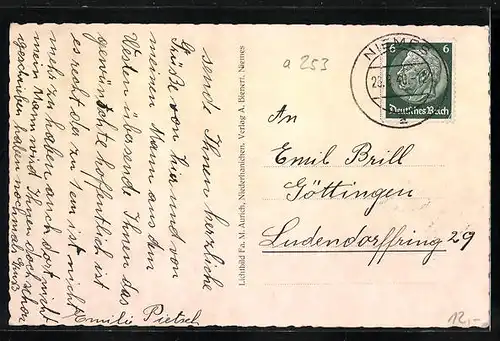 sendt Ihnen herzliche
Grüße von hier und von
meinen Mann aus dem
Westen übersende Ihnen das
gewünschte hoffentlich ist
es recht das zu sein ist nicht
mehr zu haben auch dort nicht
mein Mann wird Ihnen doch schon
geschrieben haben nochmals Gruß
Emilie Pietsch
Lichtbild Fa. M. Aurich, Niederhanichen. Verlag A. Bienert, Niemes
a 253
NIEMES
6 6
Deutsches Reich
a
An
Emil Brill
Göttingen
Ludendorffring 29
12,-